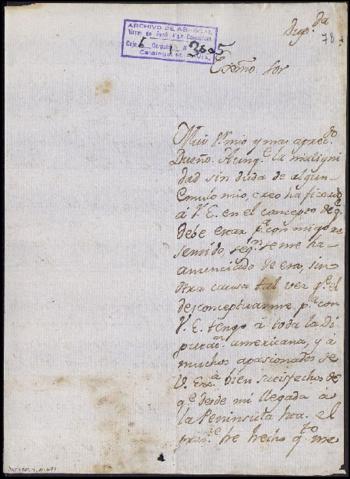 Dup.da
78
ARCHIVO DE ABASCAL
3605
Exmo. Sor
Mui Sr. mio y mas apre.do
Dueño. Aunq.e la maligni
dad sin duda de algun
Comulo mio, creo ha ficado
a V. E. en el concepto de q.e
debe estar p.r con migo re
sentido, seg.n se me ha
anunciado de esa, sin
otra causa tal vez q.e el
desconceptuarme p.a con
V. E. tengo à toda la Di
putac.on americana, y à
muchos apasionados de
V. Exc.a bien satisfechos de
q.e desde mi llegada a
la Peninsula hta. el
pres.te he hecho q.to me